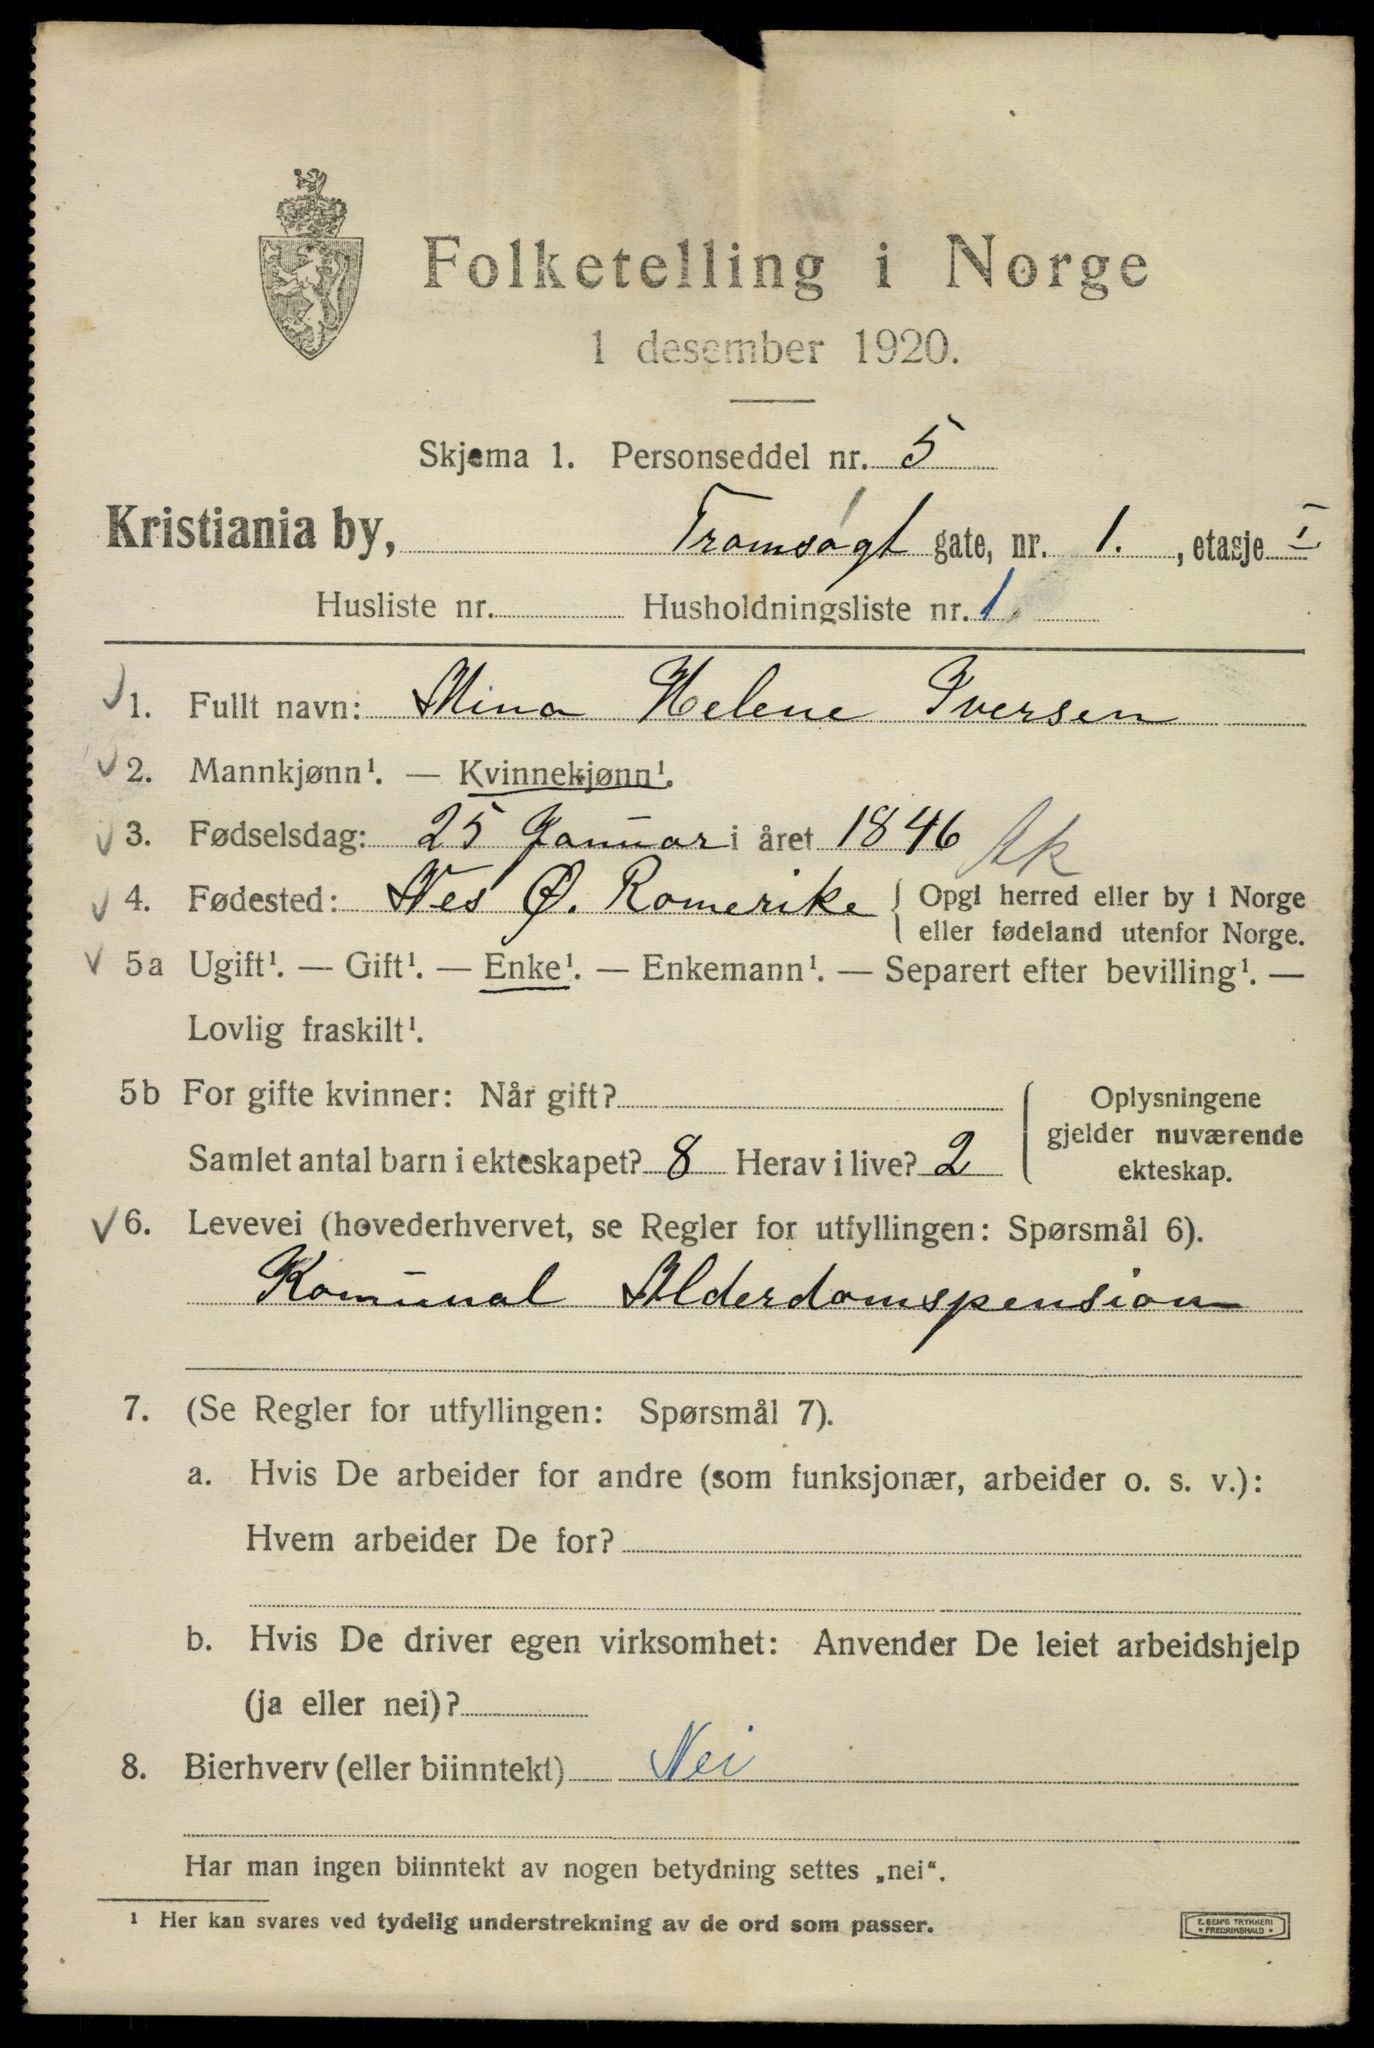 Folketelling i Norge
1 desember 1920.
Skjema 1. Personseddel nr. 5
Kristiania by, Tromsøgt gate, nr. 1. , etasje I
Husliste nr. Husholdningsliste nr. 1.
1. Fullt navn: Mina Helene Iversen
2. Mannkjønn¹. — Kvinnekjønn¹.
3. Fødselsdag: 25 Januar i året 1846 Ak
4. Fødested: Nes Ø. Romerike { Opgi herred eller by i Norge
eller fødeland utenfor Norge.
5a Ugift¹. — Gift¹. — Enke¹. — Enkemann¹. — Separert efter bevilling¹. —
Lovlig fraskilt¹.
5b For gifte kvinner: Når gift?
Samlet antal barn i ekteskapet? 8 Herav i live? 2
Oplysningene
gjelder nuværende
ekteskap.
6. Levevei (hovederhvervet, se Regler for utfyllingen: Spørsmål 6).
Komunal Alderdomspension
7. (Se Regler for utfyllingen: Spørsmål 7).
a. Hvis De arbeider for andre (som funksjonær, arbeider o. s. v.):
Hvem arbeider De for?
b. Hvis De driver egen virksomhet: Anvender De leiet arbeidshjelp
(ja eller nei)?
8. Bierhverv (eller biinntekt) Nei
Har man ingen biinntekt av nogen betydning settes „nei“.
¹ Her kan svares ved tydelig understrekning av de ord som passer.
E. SEM'S TRYKKERI
• FREDRIKSHALD •